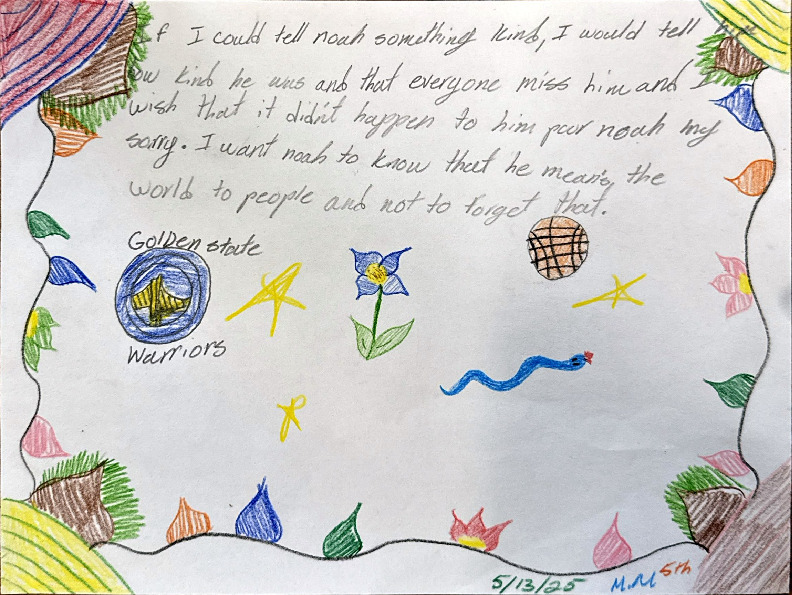 If I could tell noah something kind, I would tell him
how kind he was and that everyone miss him and I
wish that it didn't happen to him pour noah my
sorry. I want noah to know that he means the
world to people and not to forget that.
Golden state
Warriors
5/13/25 M.M 5th